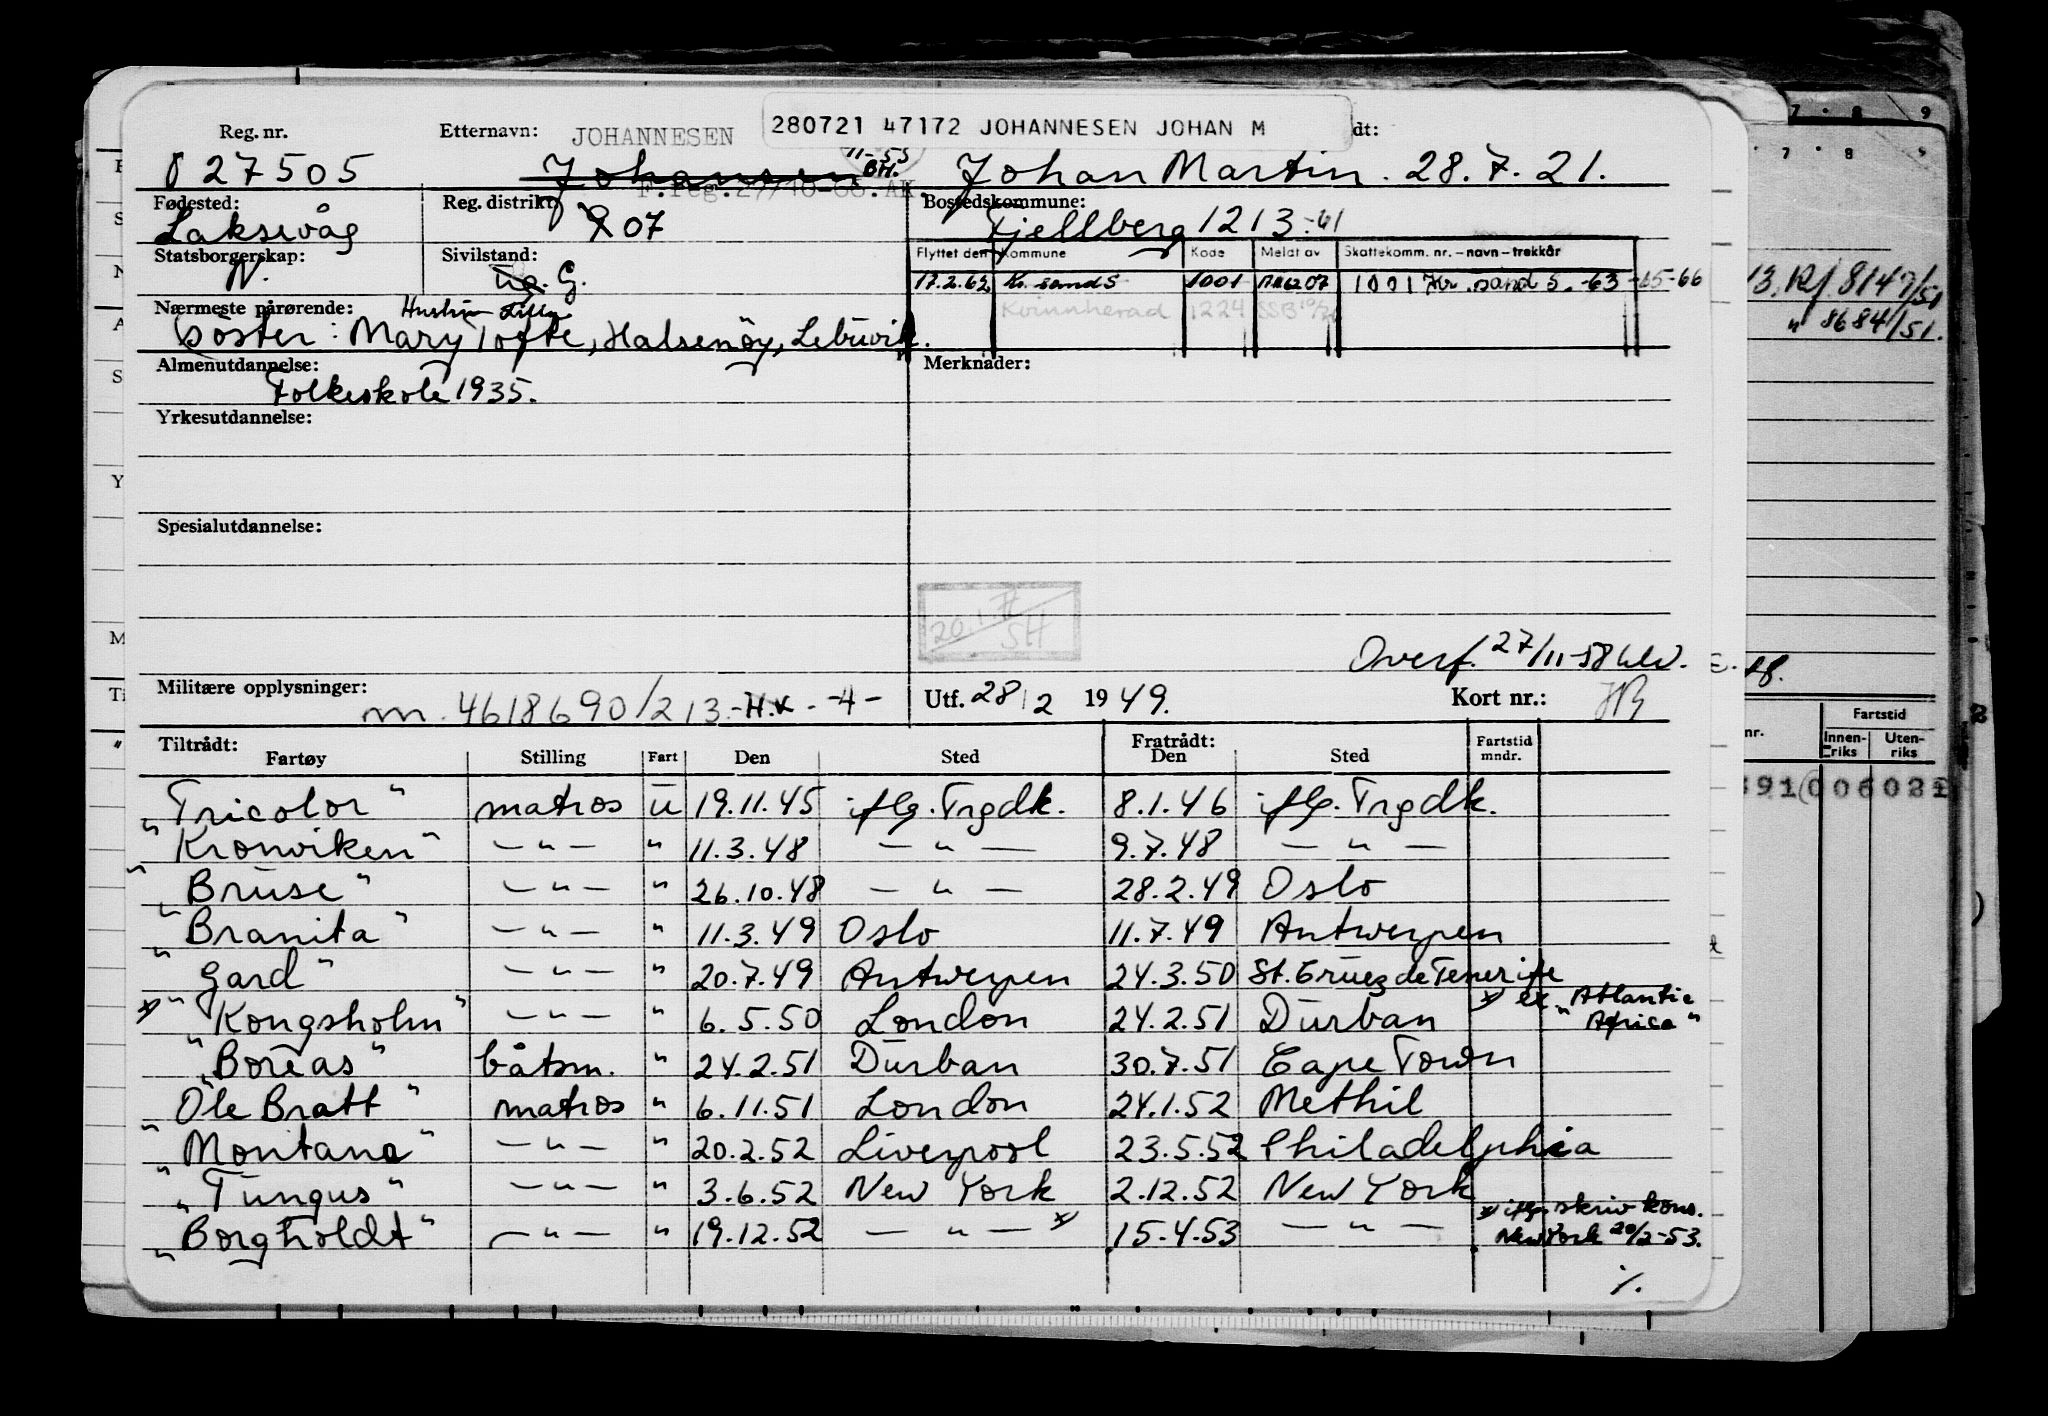 280721 47172 JOHANNESEN JOHAN M
Reg. nr. Etternavn: JOHANNESEN dt:
027505 Johansen 11-55 BH. Johan Martin. 28.7.21.
F.reg.27/10-66.AK.
Fødested: Reg. distrikt: Bostedskommune:
Laksevåg 207 Fjellberg 1213-61
Statsborgerskap: Sivilstand: Flyttet den Kommune Kode Meldt av Skattekomm. nr. – navn – trekkår
N. Ug. G. 17.2.62 Kr. sand S 1001 1001 Kr. sand S. -63-65-66
Nærmeste pårørende: Hustru Lilly Kvinnherad 1224
Søster: Mary Tofte, Halsenöy, Lebuvik.
Almenutdannelse: Merknader:
Folkeskole 1935.
Yrkesutdannelse:
Spesialutdannelse:
20.1.77
SH
Overf. 27/11-58
Militære opplysninger: m. 4618690/213.-H.K.-4- Utf. 28/2 1949. Kort nr.:
Tiltrådt: Fratrådt: Fartstid
Fartøy Stilling Fart Den Sted Den Sted mndr.
"Tricolor" matros u 19.11.45 iflg. Trgdk. 8.1.46 iflg. Trgdk.
"Kronviken" — " — " 11.3.48 — " — 9.7.48 — " —
"Bruse" — " — " 26.10.48 — " — 28.2.49 Oslo
"Branita" — " — " 11.3.49 Oslo 11.7.49 Antwerpen
"Gard" — " — " 20.7.49 Antwerpen 24.3.50 St. Cruez de Tenerife
x "Kongsholm" — " — " 6.5.50 London 24.2.51 Durban x ex "Atlantic Africa"
"Boreas" båtsm. " 24.2.51 Durban 30.7.51 Cape Town
"Ole Bratt" matros " 6.11.51 London 24.1.52 Methil
"Montana" — " — " 20.2.52 Liverpool 23.5.52 Philadelphia
"Tungus" — " — " 3.6.52 New York 2.12.52 New York
"Borgholdt" — " — " 19.12.52 — " — x 15.4.53 — " — x iflg. skriv kons. New York 20/2-53.
./.
7 8 9
7 8
13. Rf. 8147/51
" 8684/51.
nr. Fartstid
Innenriks Utenriks